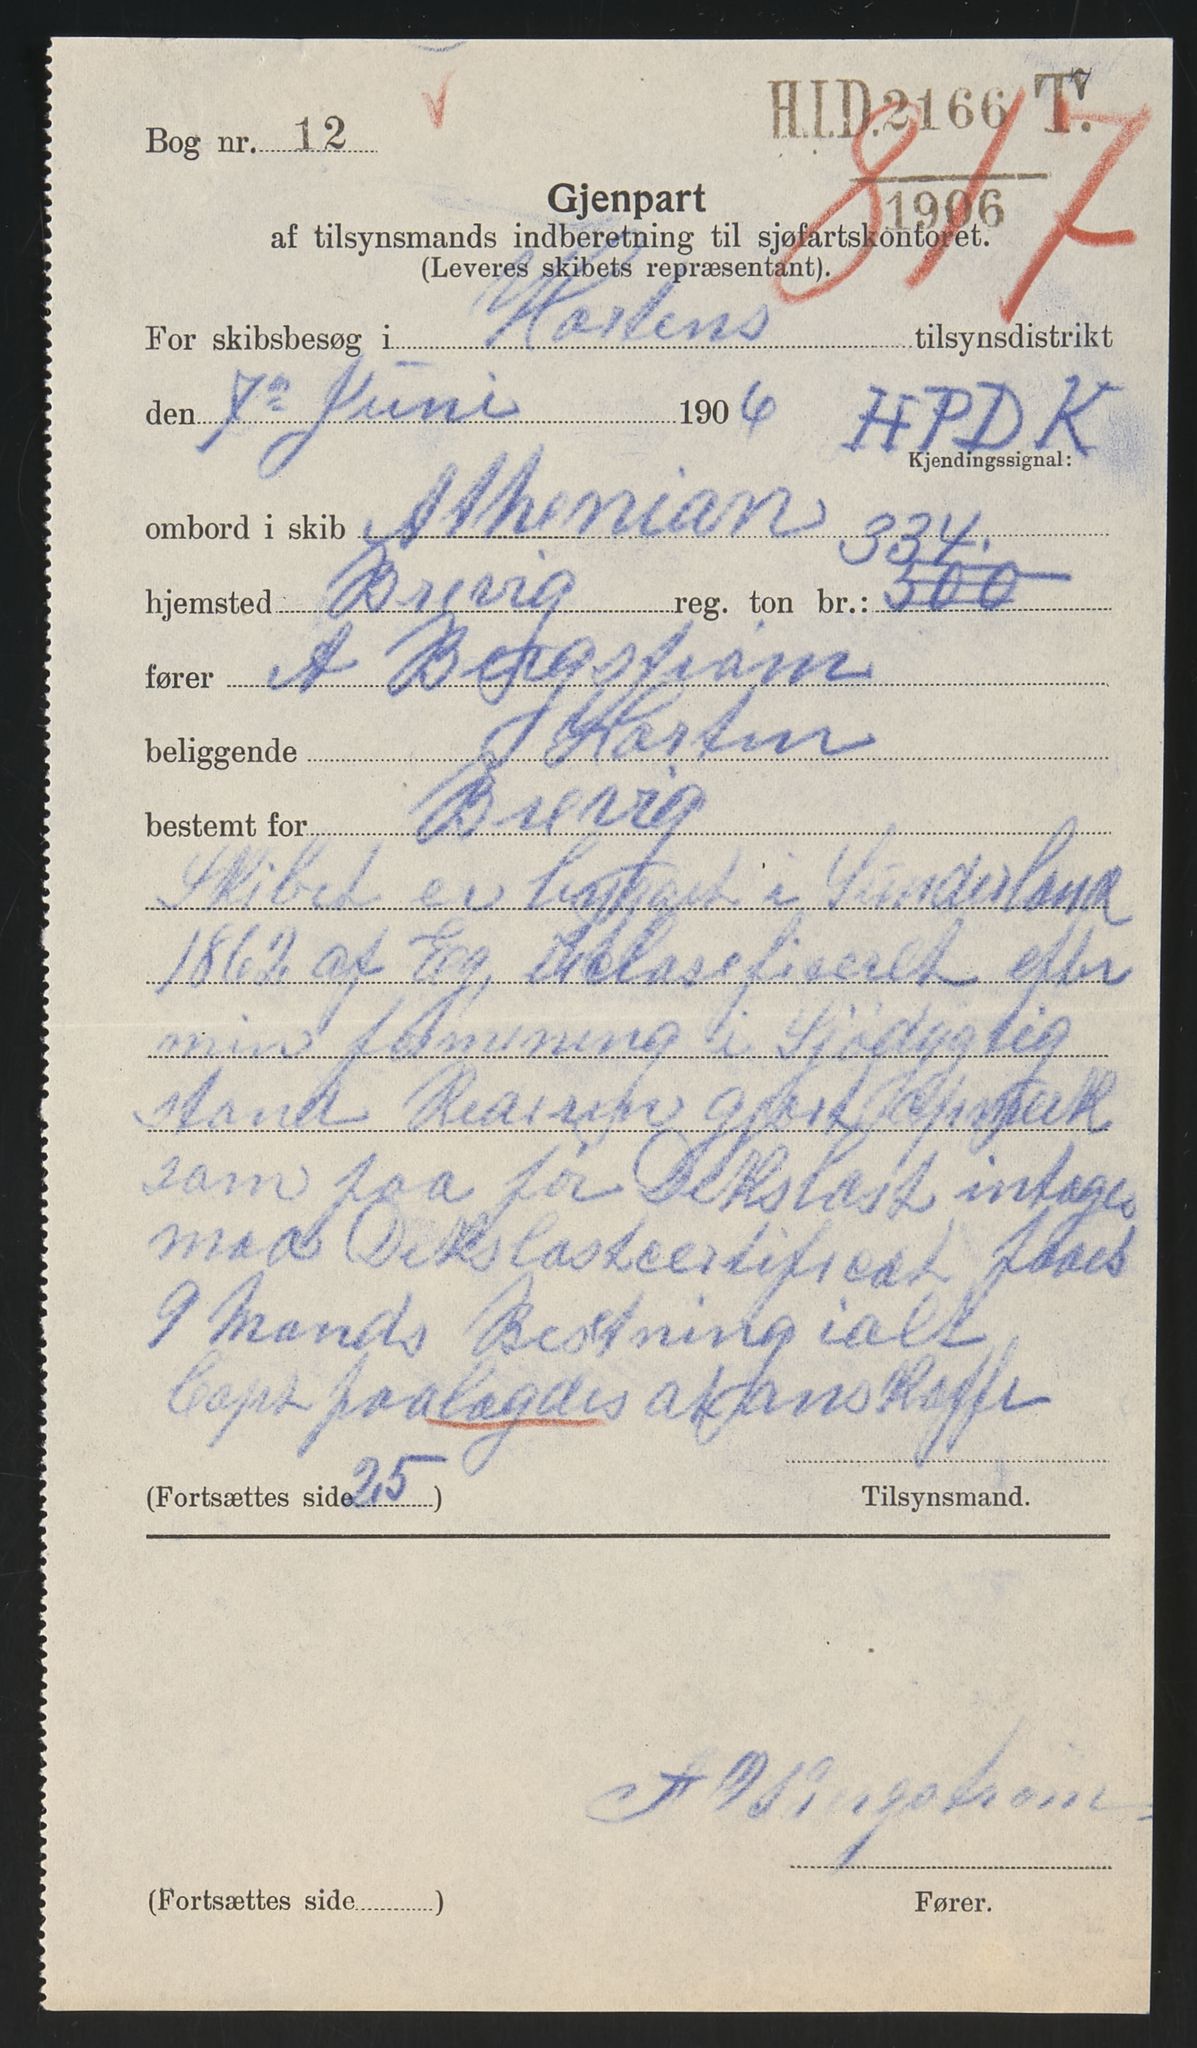 H.I.D. 2166 T.
1906
8/7
Bog nr. 12
Gjenpart
af tilsynsmands indberetning til sjøfartskontoret.
(Leveres skibets repræsentant).
For skibsbesøg i Hortens tilsynsdistrikt
den 7de Juni 1906 HPDK
Kjendingssignal:
ombord i skib Athenian 334.
hjemsted Brevig reg. ton br.: 300
fører A Bergstrøm
beliggende Horten
bestemt for Brevig
Skibet er bygget i Sunderland
1862 af Eg, efter
min formening i Sjødygtig
stand gjort
som paa før Dekslast intages
maa Dekslastcertificat faaes
9 Mands Besetning ialt
Capt paalægdes at anskaffe
(Fortsættes side 25)
Tilsynsmand.
A Bergstrøm
(Fortsættes side)
Fører.